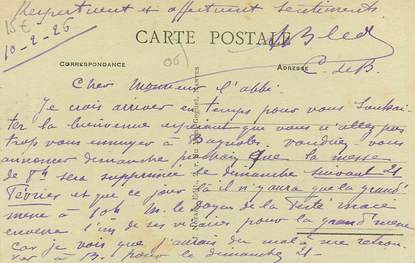 Respectueux et affectueux sentiments
15€
10-2-26
CARTE POSTALE
CORRESPONDANCE
ADRESSE
Cher Monsieur l'abbé.
Je crois arriver en temps pour vous souhai-
ter la bienvenue espérant que vous n'allez pas
trop vous ennuyer à Bagnoles. Voudriez vous
annoncer dimanche prochain que la messe
de 8h sera supprimée le dimanche suivant 21
Février et que ce jour là il n'y aura que la grand'
messe à 10h. M. le Doyen de la Ferté Macé
enverra l'un de ses vicaires pour la grand'messe
car je vois que j'aurais du mal à me retrou-
ver à B. pour le dimanche 21-